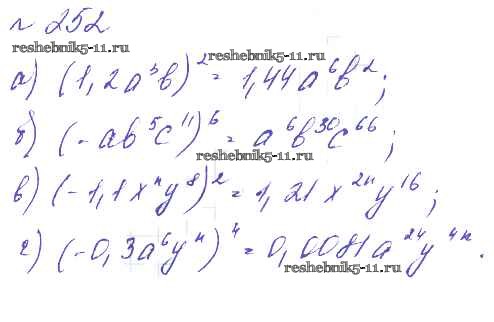 № 252
reshebnik5-11.ru
reshebnik5-11.ru
а) (1,2a³b)² = 1,44a⁶b²;
б) (-ab⁵c¹¹)⁶ = a⁶b³⁰c⁶⁶;
reshebnik5-11.ru
в) (-1,1xⁿy⁸)² = 1,21x²ⁿy¹⁶;
г) (-0,3a⁶yⁿ)⁴ = 0,0081a²⁴y⁴ⁿ.
reshebnik5-11.ru